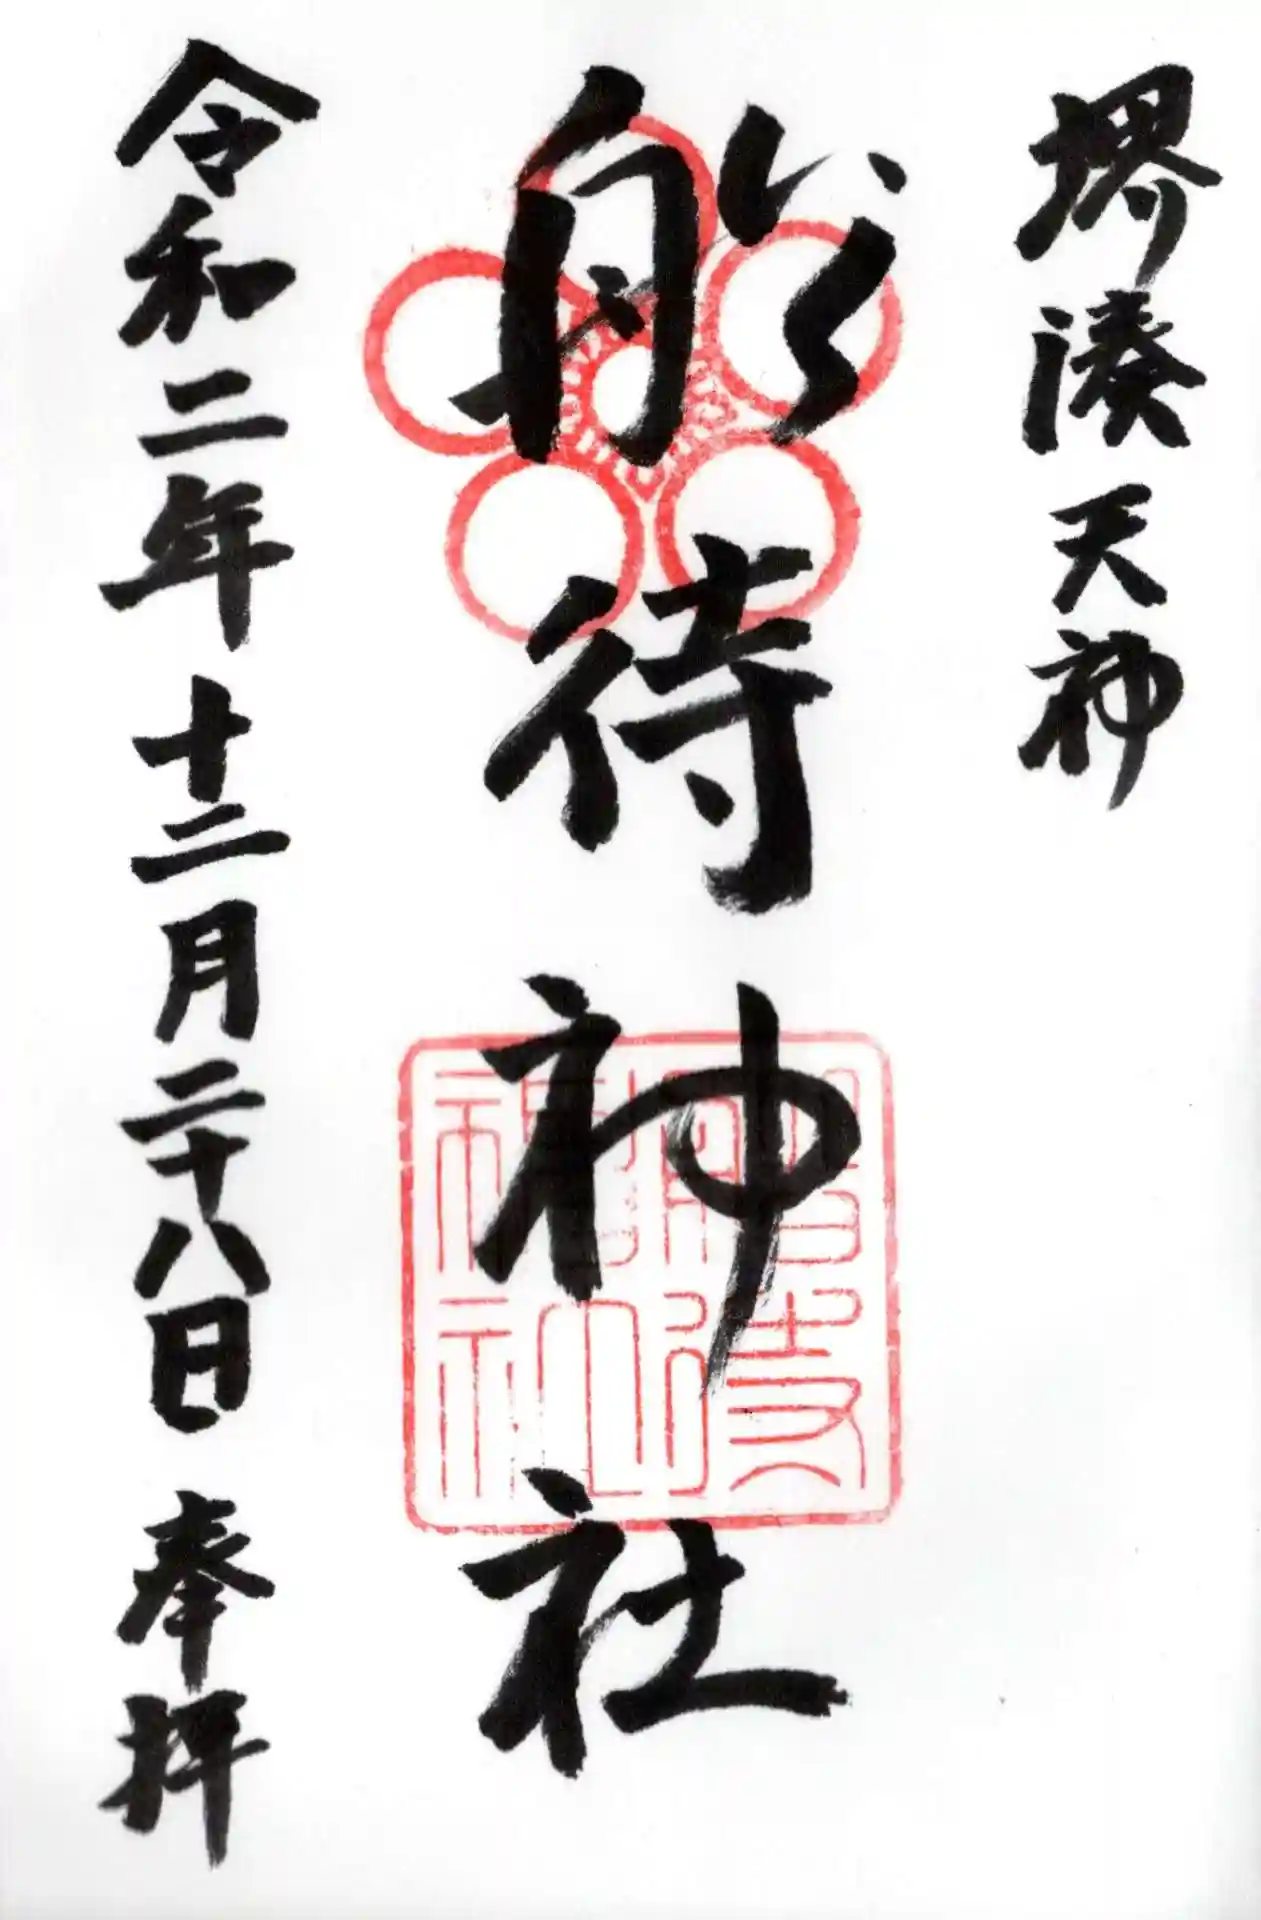 堺湊天神
船待神社
令和二年十二月二十八日 奉拝